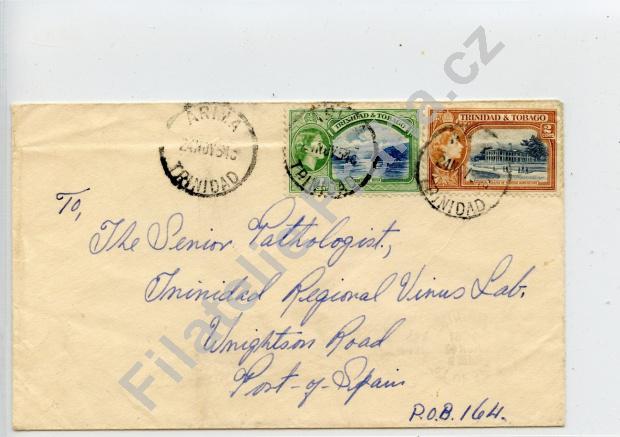 ARIMA
24 NOV 54
TRINIDAD
TRINIDAD & TOBAGO
TRINIDAD & TOBAGO
TRINIDAD
TRINIDAD
To,
The Senior Pathologist,
Trinidad Regional Virus Lab.
Wrightson Road
Port-of-Spain
P.O.B. 164.